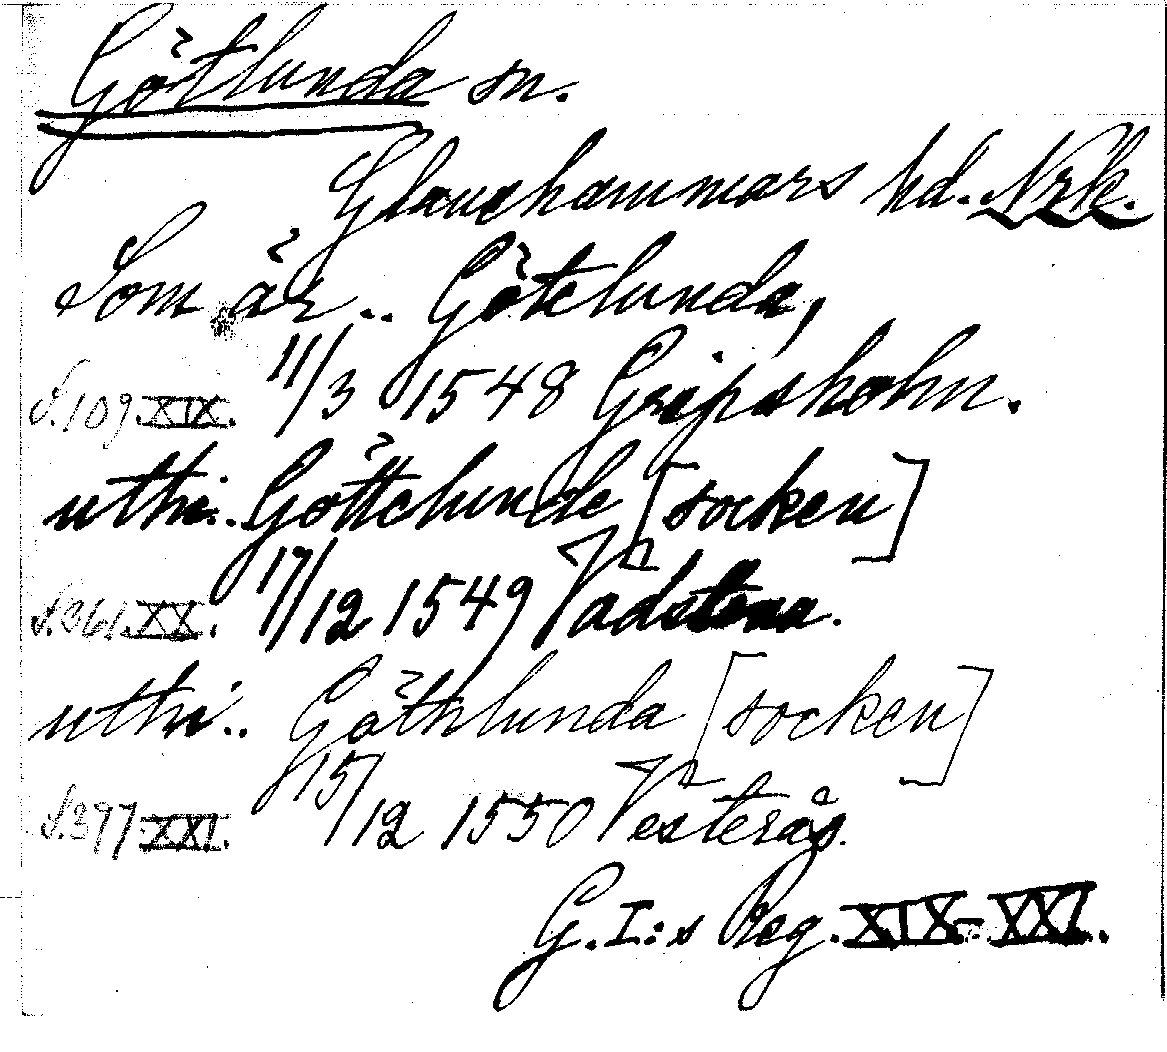 Götlunda sn.
Glanshammars hd. Nrk.
Som är.. Götelunda,
S. 109. XIX. 11/3 1548 Gripsholm.
uthi.. Göttelunde [socken]
S. 361. XX. 17/12 1549 Vadstena.
uthi.. Göthlunda [socken]
S. 397. XXI. 15/12 1550 Vesterås.
G. I:s Reg. XIX-XXI.